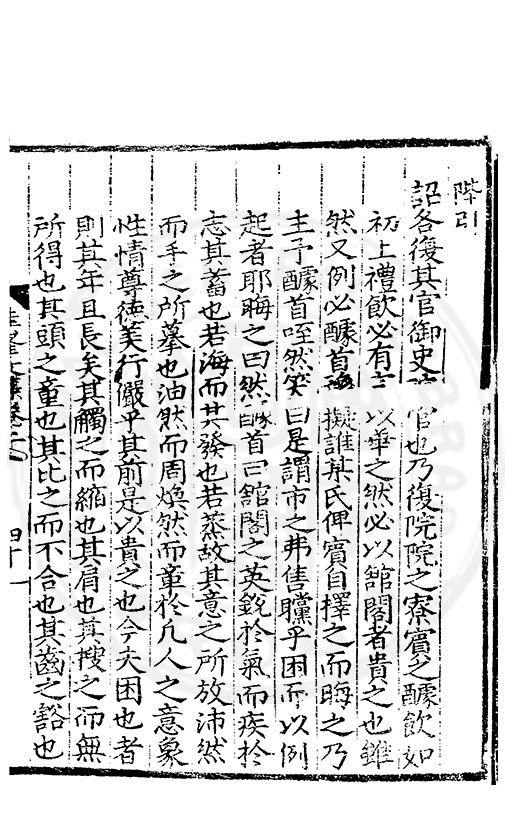 陛引
詔各復其官御史 官也乃復院院之寮賓之醵飲如
初上禮飲必有言 以華之然必以館閣者貴之也雖
然又例必醵首 擬誰某氏俾賓自擇之而晦之乃
主予醵首咥然笑曰是謂市之弗售矘乎困而以例
起者耶晦之曰然醵首曰館閣之英銳於氣而疾於
志其蓄也若海而其發也若蒸故其意之所放沛然
而手之所摹也油然而周煥然而章於凡人之意象
性情尊德美行儼乎其前是以貴之也今夫困也者
則其年且長矣其觸之而縮也其肩也其搜之而無
所得也其頭之童也其比之而不合也其齒之豁也
四十一